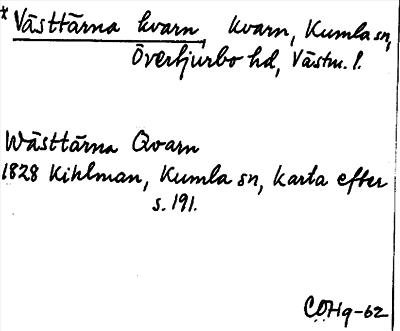 * Västtärna kvarn, kvarn, Kumla sn,
Övertjurbo hd, Västm. l.
Wästtärna Qvarn
1828 Kihlman, Kumla sn, karta efter
s. 191.
COHg-62